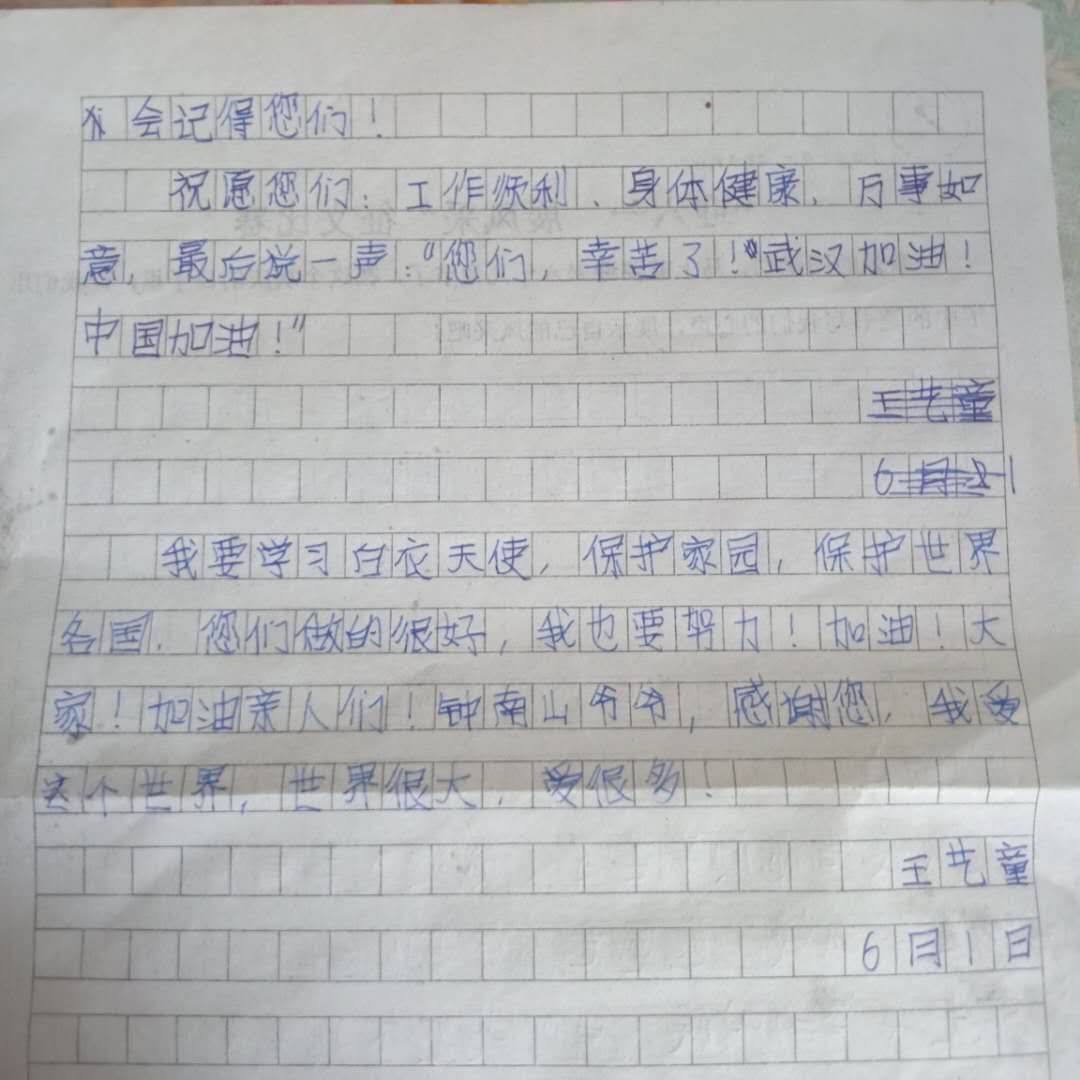 会记得您们！
祝愿您们：工作顺利、身体健康，万事如
意，最后说一声：“您们，幸苦了！”武汉加油！
中国加油！”
王艺童
6月
我要学习白衣天使，保护家园，保护世界
各国．您们做的很好，我也要努力！加油！大
家！加油亲人们！钟南山爷爷，感谢您，我爱
这个世界，世界很大，爱很多！
王艺童
6月1日